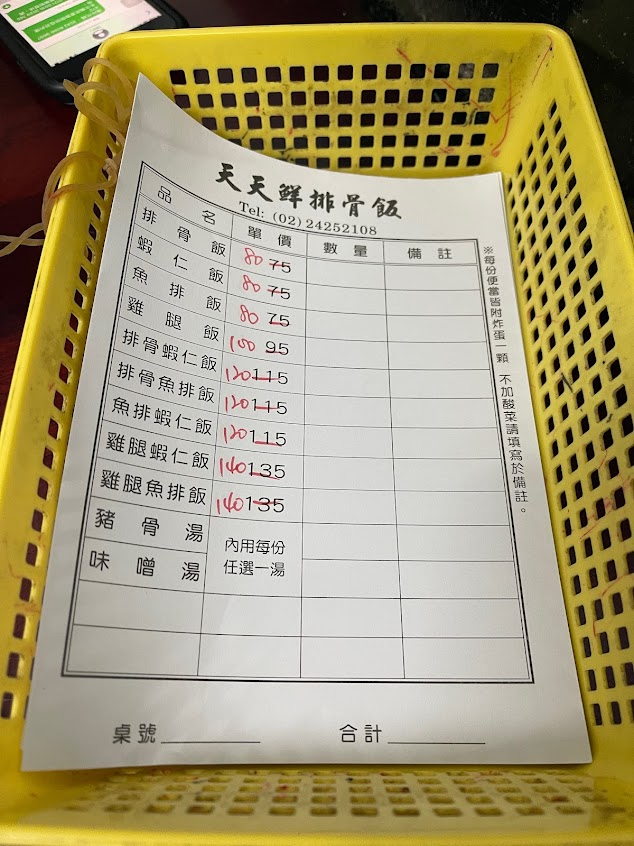 天天鮮排骨飯
Tel: (02)24252108
品名 單價 數量 備註
排骨飯 80 75
蝦仁飯 80 75
魚排飯 80 75
雞腿飯 100 95
排骨蝦仁飯 120 115
排骨魚排飯 120 115
魚排蝦仁飯 120 115
雞腿蝦仁飯 140 135
雞腿魚排飯 140 135
豬骨湯
味噌湯
內用每份
任選一湯
※每份便當皆附炸蛋一顆 不加酸菜請填寫於備註。
桌號 合計